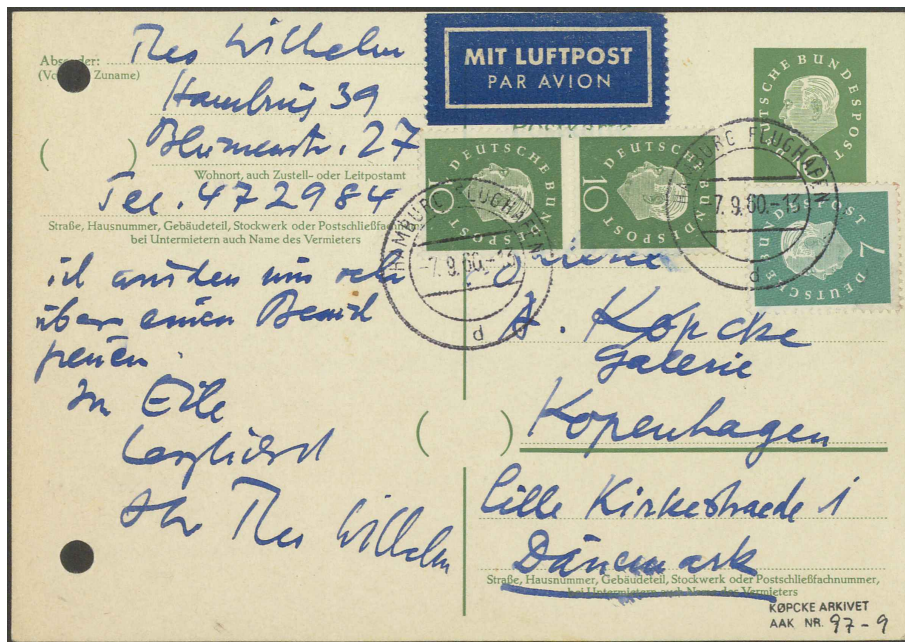 Theo Wilhelm
Hamburg 39
Blumenstr. 27
Tel. 472984
Absender:
(Vor- Zuname)
Wohnort, auch Zustell- oder Leitpostamt
Straße, Hausnummer, Gebäudeteil, Stockwerk oder Postschließfachnummer
bei Untermietern auch Name des Vermieters
ich würden uns sehr
über einen Besuch
freuen.
In Eile
herzlichst
Ihr Theo Wilhelm
MIT LUFTPOST
PAR AVION
DEUTSCHE BUNDESPOST
10
DEUTSCHE BUNDESPOST
10
DEUTSCHE BUNDESPOST
DEUTSCHE BUNDESPOST
7
HAMBURG FLUGHAFEN
-7.9.60.-13
d
HAMBURG FLUGHAFEN
-7.9.60.-13
d
A. Köpcke
Galerie
Kopenhagen
Lille Kirkestraede 1
Dänemark
Straße, Hausnummer, Gebäudeteil, Stockwerk oder Postschließfachnummer,
bei Untermietern auch Name des Vermieters
KØPCKE ARKIVET
AAK NR. 97-9